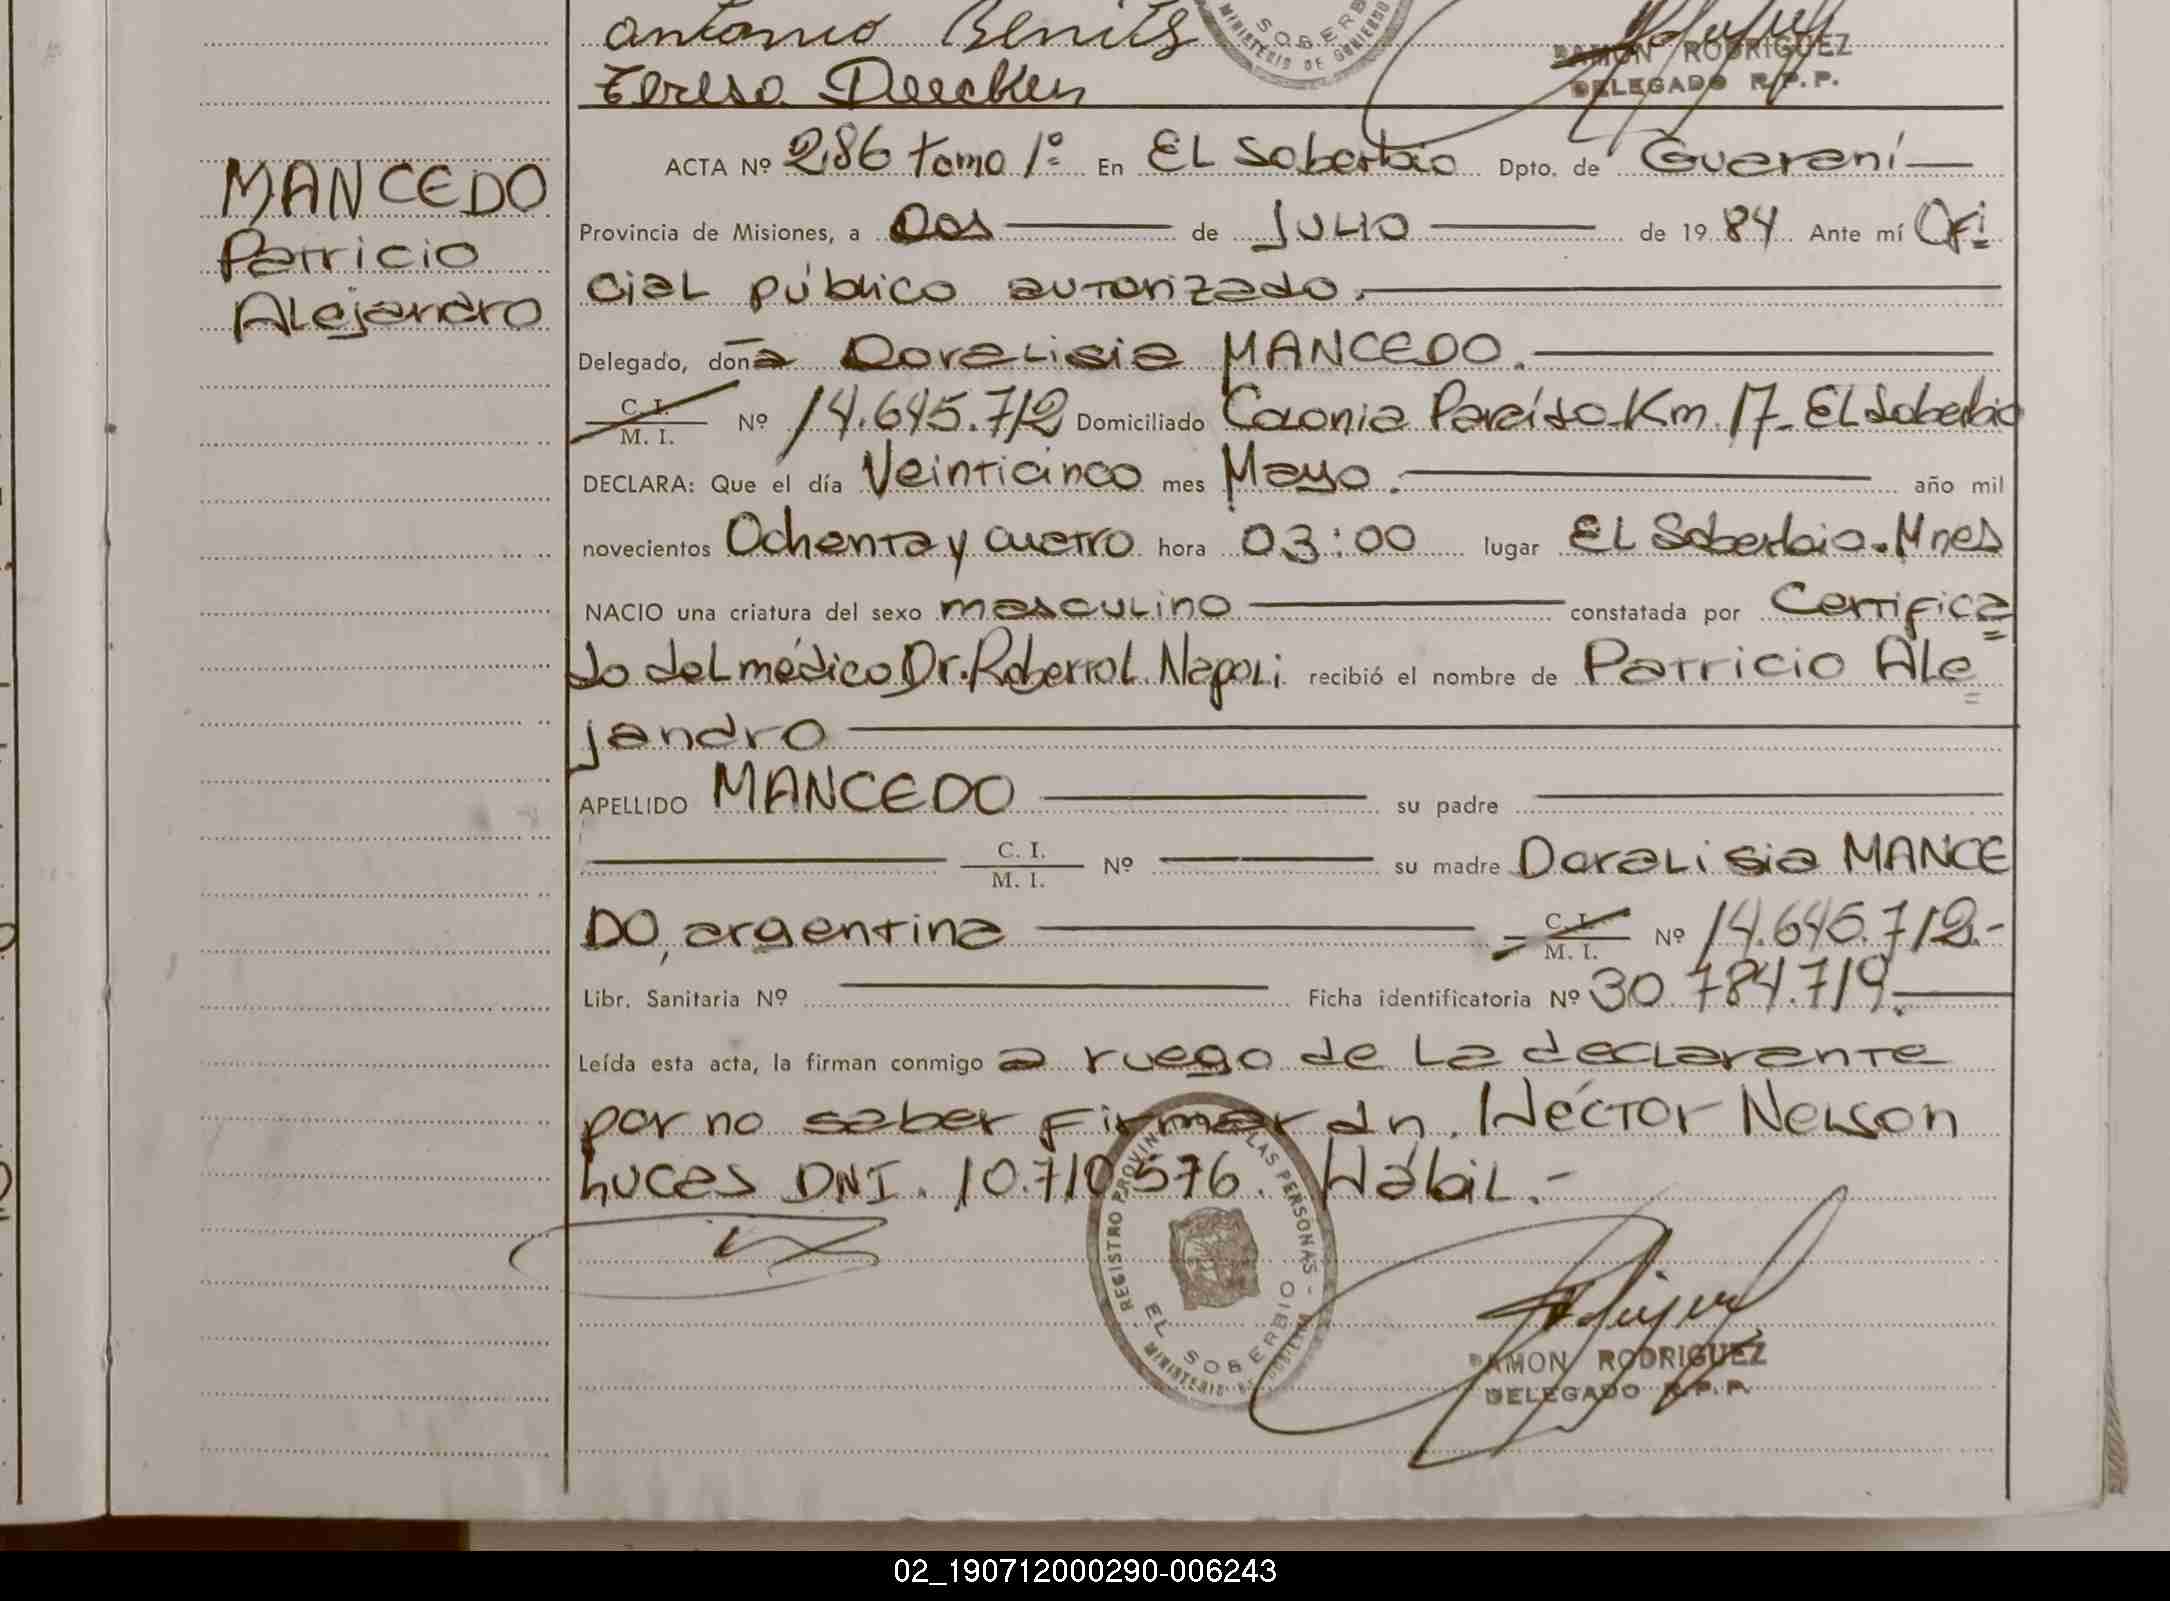 Antonio Benits
Teresa Deecken
SOBERB
MINISTERIO DE GOBIERNO
RAMON RODRIGUEZ
DELEGADO R.P.P.
MANCEDO
Patricio
Alejandro
ACTA Nº 286 tomo 1º En EL Soberbio Dpto. de Guaraní
Provincia de Misiones, a Dos de JULIO de 1984 Ante mí Ofi
cial público autorizado.
Delegado, doña Doralisia MANCEDO.
C. I. / M. I. Nº 14.645.712 Domiciliado Colonia Paraíso Km. 17 - EL Soberbio
DECLARA: Que el día Veinticinco mes Mayo. año mil
novecientos Ochenta y cuatro hora 03:00 lugar EL Soberbio. Mnes
NACIO una criatura del sexo masculino constatada por Certifica
do del médico Dr. Roberto L. Napoli recibió el nombre de Patricio Ale
jandro
APELLIDO MANCEDO su padre
C. I. / M. I. Nº su madre Doralisia MANCE
DO, argentina C. I. / M. I. Nº 14.645.712.-
Libr. Sanitaria Nº Ficha identificatoria Nº 30.784.719.
Leída esta acta, la firman conmigo a ruego de la declarante
por no saber firmar dn. Héctor Nelson
Lucas DNI. 10.710.576. Hábil.-
REGISTRO PROVIN LAS PERSONAS
EL SOBERBIO
MINISTERIO DE GOBIERNO
RAMON RODRIGUEZ
DELEGADO R.P.P.
02_190712000290-006243